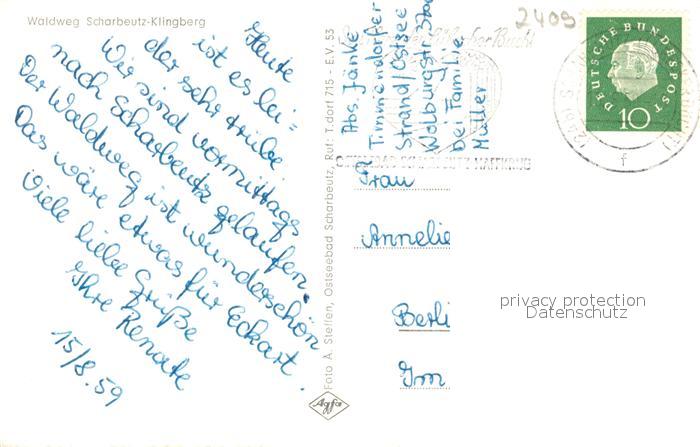 Waldweg Scharbeutz-Klingberg
Heute
ist es lei=
der sehr trübe
Wir sind vormittags
nach Scharbeutz gelaufen.
Der Waldweg ist wunderschön
Das wäre etwas für Eckart.
Viele liebe Grüße
Ihre Renate
15/8.59
Foto A. Steffen, Ostseebad Scharbeutz, Ruf: T.dorf 715 - E.V. 53
Agfa
Abs. Jänke
Timmendorfer
Strand/Ostsee
Wolburgstr.
bei Familie
Müller
2409
DEUTSCHE BUNDESPOST
10
f
Frau
Annelie
Berli
Im
privacy protection
Datenschutz